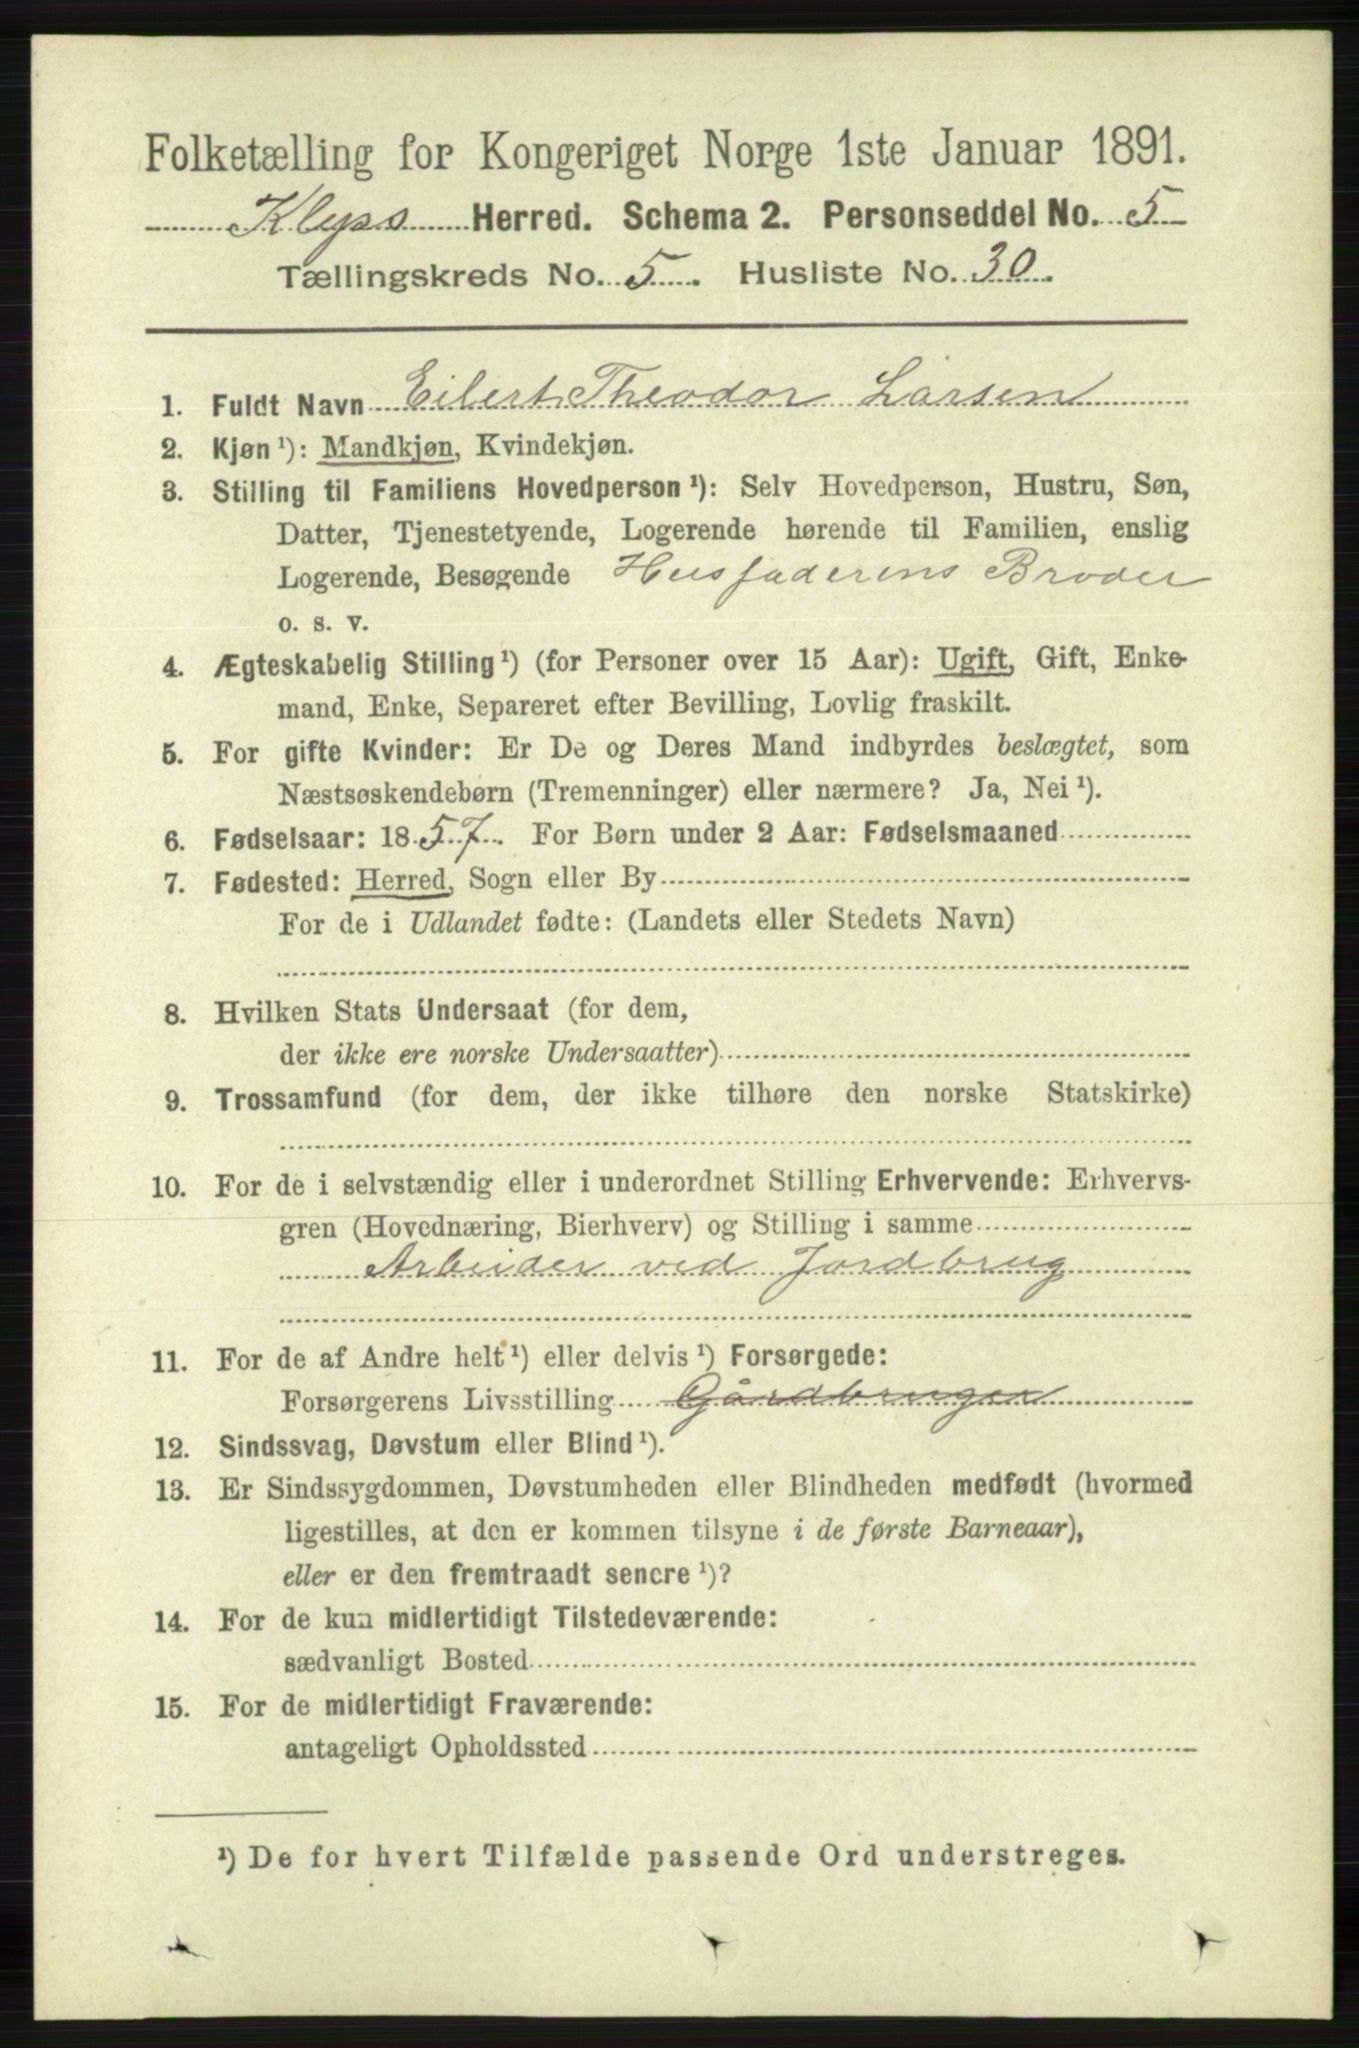 Folketælling for Kongeriget Norge 1ste Januar 1891.
Klyps Herred. Schema 2. Personseddel No. 5
Tællingskreds No. 5. Husliste No. 30.
1. Fuldt Navn Eilert Theodor Larsen
2. Kjøn ¹): Mandkjøn, Kvindekjøn.
3. Stilling til Familiens Hovedperson ¹): Selv Hovedperson, Hustru, Søn,
Datter, Tjenestetyende, Logerende hørende til Familien, enslig
Logerende, Besøgende Husfaderens Broder
o. s. v.
4. Ægteskabelig Stilling ¹) (for Personer over 15 Aar): Ugift, Gift, Enke-
mand, Enke, Separeret efter Bevilling, Lovlig fraskilt.
5. For gifte Kvinder: Er De og Deres Mand indbyrdes beslægtet, som
Næstsøskendebørn (Tremenninger) eller nærmere? Ja, Nei ¹).
6. Fødselsaar: 1857. For Børn under 2 Aar: Fødselsmaaned
7. Fødested: Herred, Sogn eller By
For de i Udlandet fødte: (Landets eller Stedets Navn)
8. Hvilken Stats Undersaat (for dem,
der ikke ere norske Undersaatter)
9. Trossamfund (for dem, der ikke tilhøre den norske Statskirke)
10. For de i selvstændig eller i underordnet Stilling Erhvervende: Erhvervs-
gren (Hovednæring, Bierhverv) og Stilling i samme
Arbeider ved Jordbrug
11. For de af Andre helt ¹) eller delvis ¹) Forsørgede:
Forsørgerens Livsstilling Gårdbruger
12. Sindssvag, Døvstum eller Blind ¹).
13. Er Sindssygdommen, Døvstumheden eller Blindheden medfødt (hvormed
ligestilles, at den er kommen tilsyne i de første Barneaar),
eller er den fremtraadt senere ¹)?
14. For de kun midlertidigt Tilstedeværende:
sædvanligt Bosted
15. For de midlertidigt Fraværende:
antageligt Opholdssted
¹) De for hvert Tilfælde passende Ord understreges.